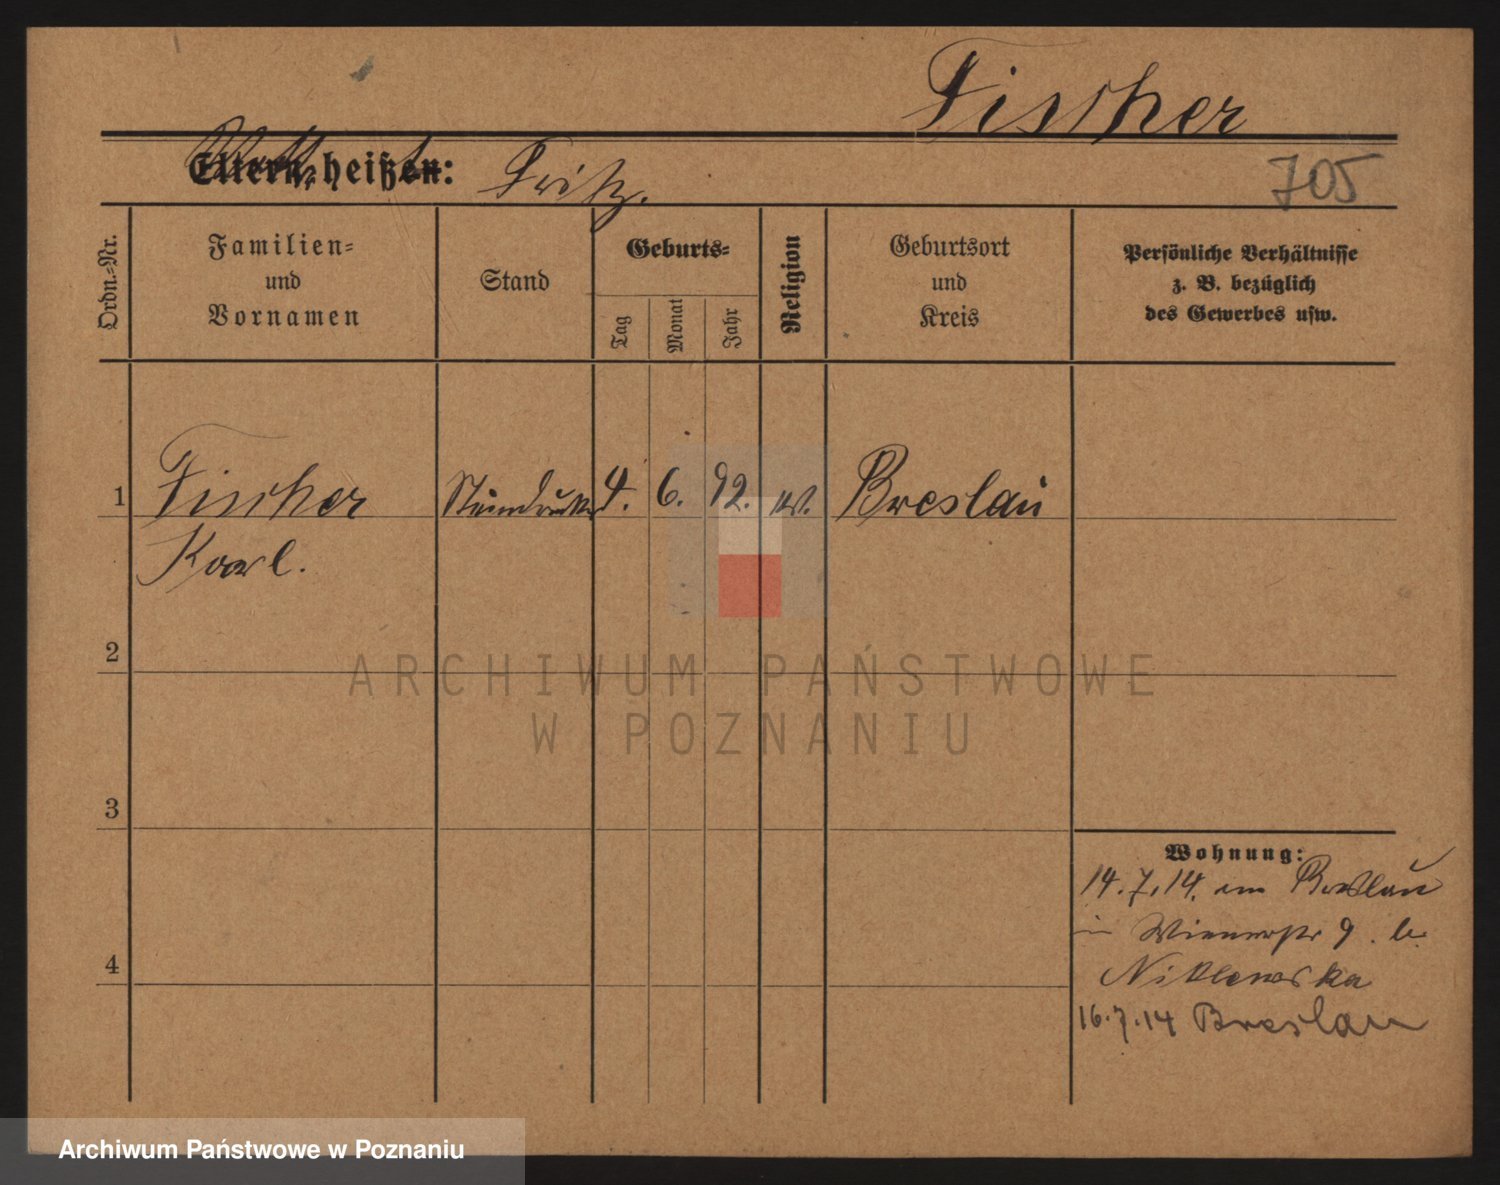 Fischer
Eltern heißen: Fritz.
705
Ordn.-Nr.
Familien-
und
Vornamen
Stand
Geburts-
Tag
Monat
Jahr
Religion
Geburtsort
und
Kreis
Persönliche Verhältnisse
z. B. bezüglich
des Gewerbes usw.
1 Fischer Steindrucker 4. 6. 92. ev. Breslau
Karl.
2
ARCHIWUM PAŃSTWOWE
W POZNANIU
3
Wohnung:
14.7.14. Breslau
Wienerstr 9. b.
4
Niklewska
16.7.14 Breslau
Archiwum Państwowe w Poznaniu